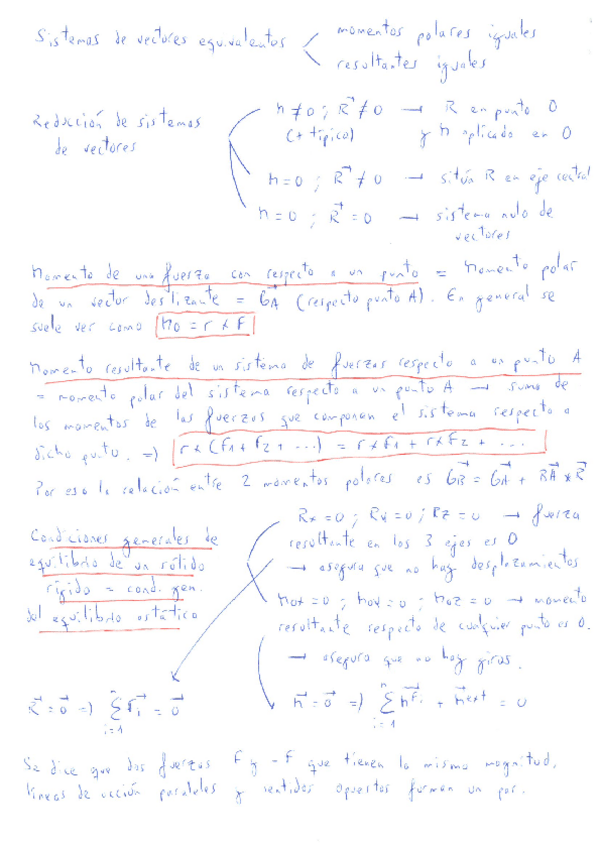 Sistemas de vectores equivalentes
momentos polares iguales
resultantes iguales
Reducción de sistemas
de vectores
M ≠ 0 ; R⃗ ≠ 0 → R en punto O
(+ típico) y M aplicado en O
M = 0 ; R⃗ ≠ 0 → sitúa R en eje central
M = 0 ; R⃗ = 0 → sistema nulo de
vectores
Momento de una fuerza con respecto a un punto = Momento polar
de un vector deslizante = G⃗A (respecto punto A). En general se
suele ver como M0 = r x F
Momento resultante de un sistema de fuerzas respecto a un punto A
= momento polar del sistema respecto a un punto A → suma de
los momentos de las fuerzas que componen el sistema respecto a
dicho punto. =) r x (F1 + F2 + ...) = r x F1 + r x F2 + ...
Por eso la relación entre 2 momentos polares es G⃗B = G⃗A + B⃗A * R⃗
Condiciones generales de
equilibrio de un sólido
rígido = cond. gen.
del equilibrio estático
Rx = 0 ; Ry = 0 ; Rz = 0 → fuerza
resultante en los 3 ejes es 0
→ asegura que no hay desplazamientos
Mox = 0 ; Moy = 0 ; Moz = 0 → momento
resultante respecto de cualquier punto es 0.
→ asegura que no hay giros.
R⃗ = 0⃗ =) Σ F⃗i = 0⃗
i=1
n
M⃗ = 0⃗ =) Σ M⃗Fi + M⃗ext = 0
i=1
n
Se dice que dos fuerzas F y -F que tienen la misma magnitud,
líneas de acción paralelas y sentidos opuestos forman un par.